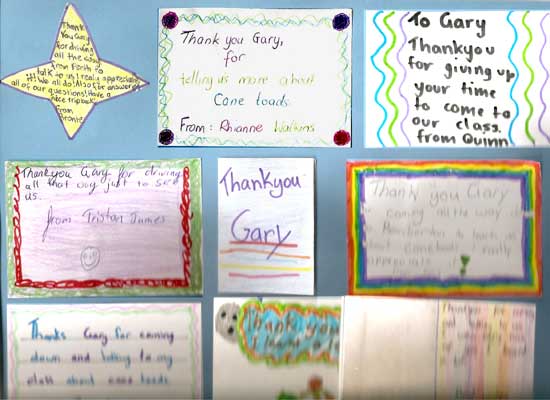 Thank
You Gary
for driving
all the way
from Perth to
talk to us I really appreciate
it! We all do! Also for answering
all of our questions! Have a
nice trip back
from
Bronte
Thank you Gary,
for
telling us more about
Cane toads.
From: Rhianne Watkins
To Gary
Thankyou
for giving up
your time
to come to
our class.
from Quinn
Thankyou Gary for driving
all that way just to see
us...
from Tristan James
Thankyou
Gary
Thank you Gary
coming all the way
to teach us
about Canetoads. I really
appreciate it
Thanks Gary for coming
down and talking to my
class about cane toads
Thank you